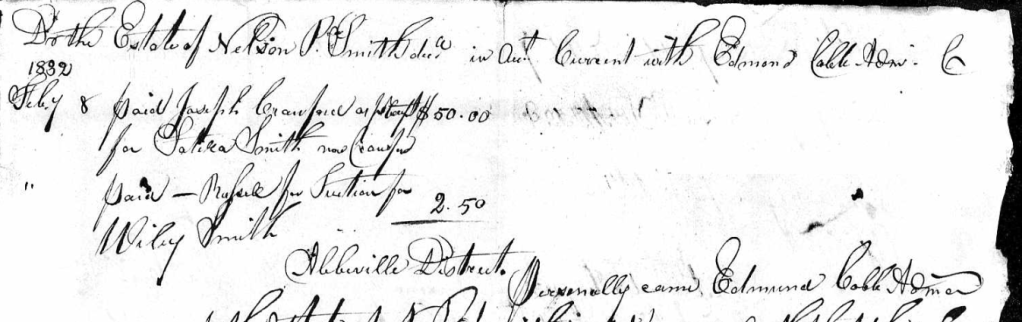 Dr the Estate of Nelson P. Smith decd in Act Current with Edmond Cobb Adm. C
1832
Feby 8 paid Joseph Crawford $50.00
for Satira Smith now Crawford
" paid — Russell for Tuetion for 2.50
Wiley Smith
Abbeville District.
Personally came Edmund Cobb Admor